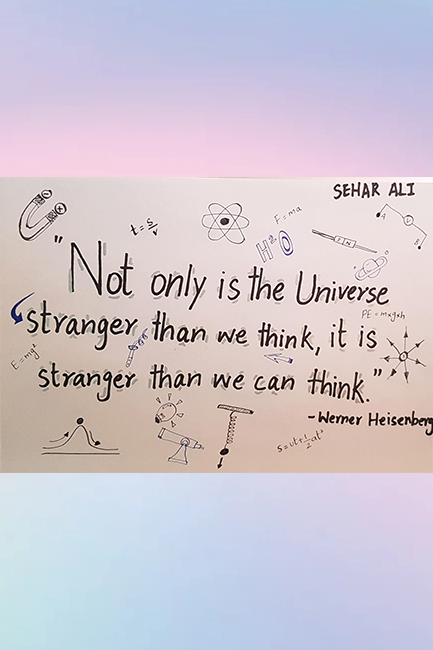 SEHAR ALI
t = s/v
F = ma
H²O
A
B
"Not only is the Universe
stranger than we think, it is
PE = mxgxh
E=mg²
stranger than we can think."
- Werner Heisenberg
S=ut+½at²